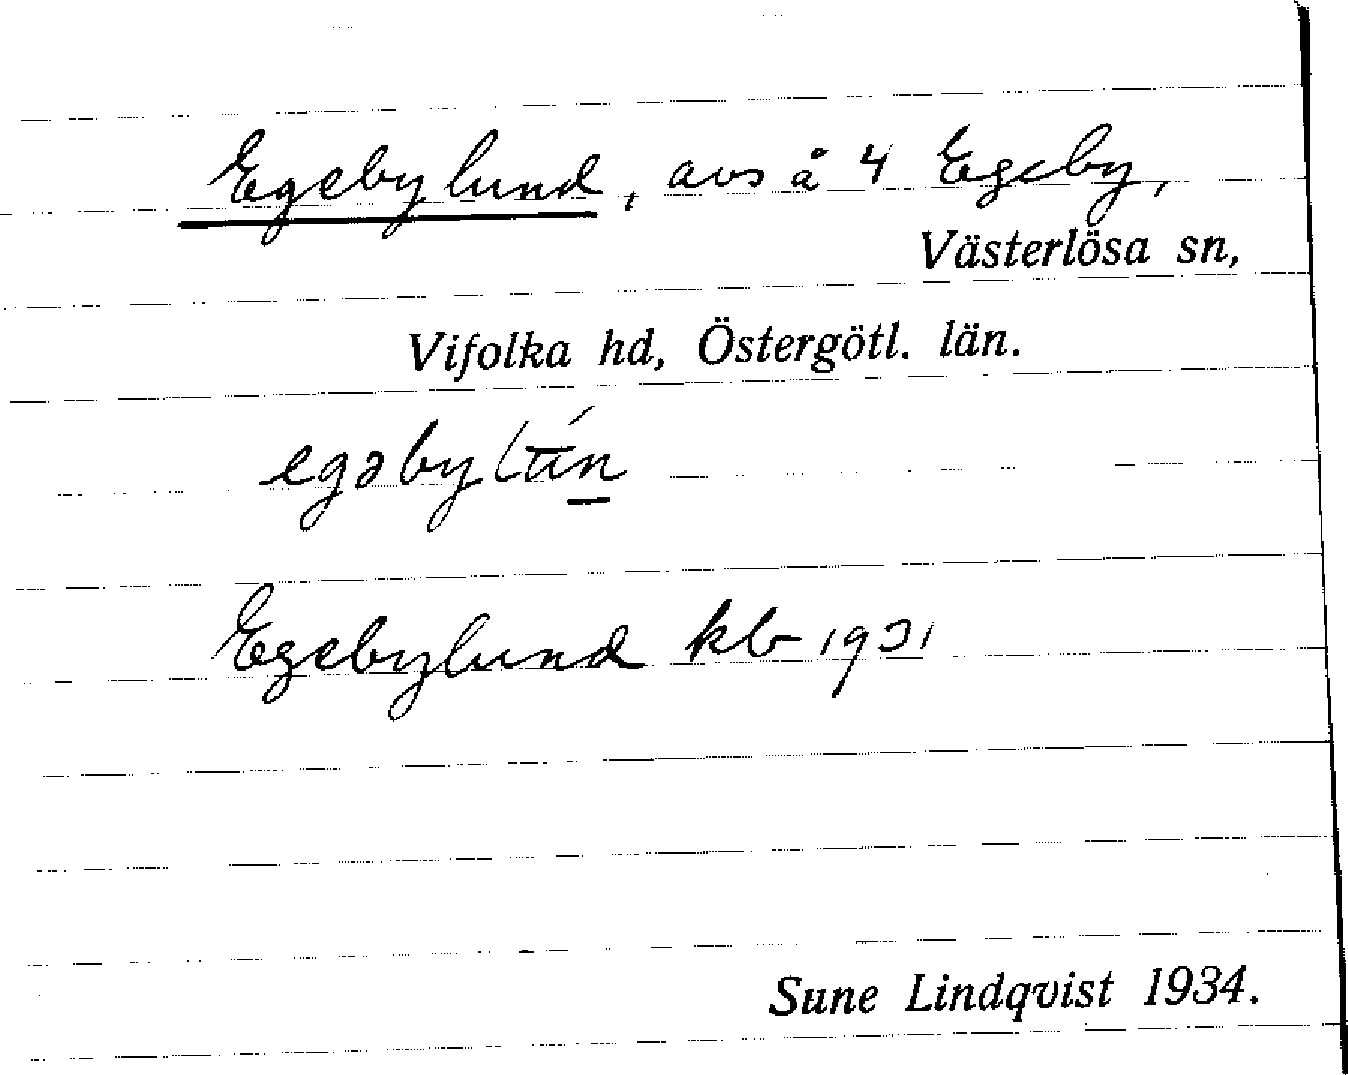 Egebylund, avs å 4 Egeby,
Västerlösa sn,
Vifolka hd, Östergötl. län.
egəbylū́n
Egebylund kb 1931
Sune Lindqvist 1934.